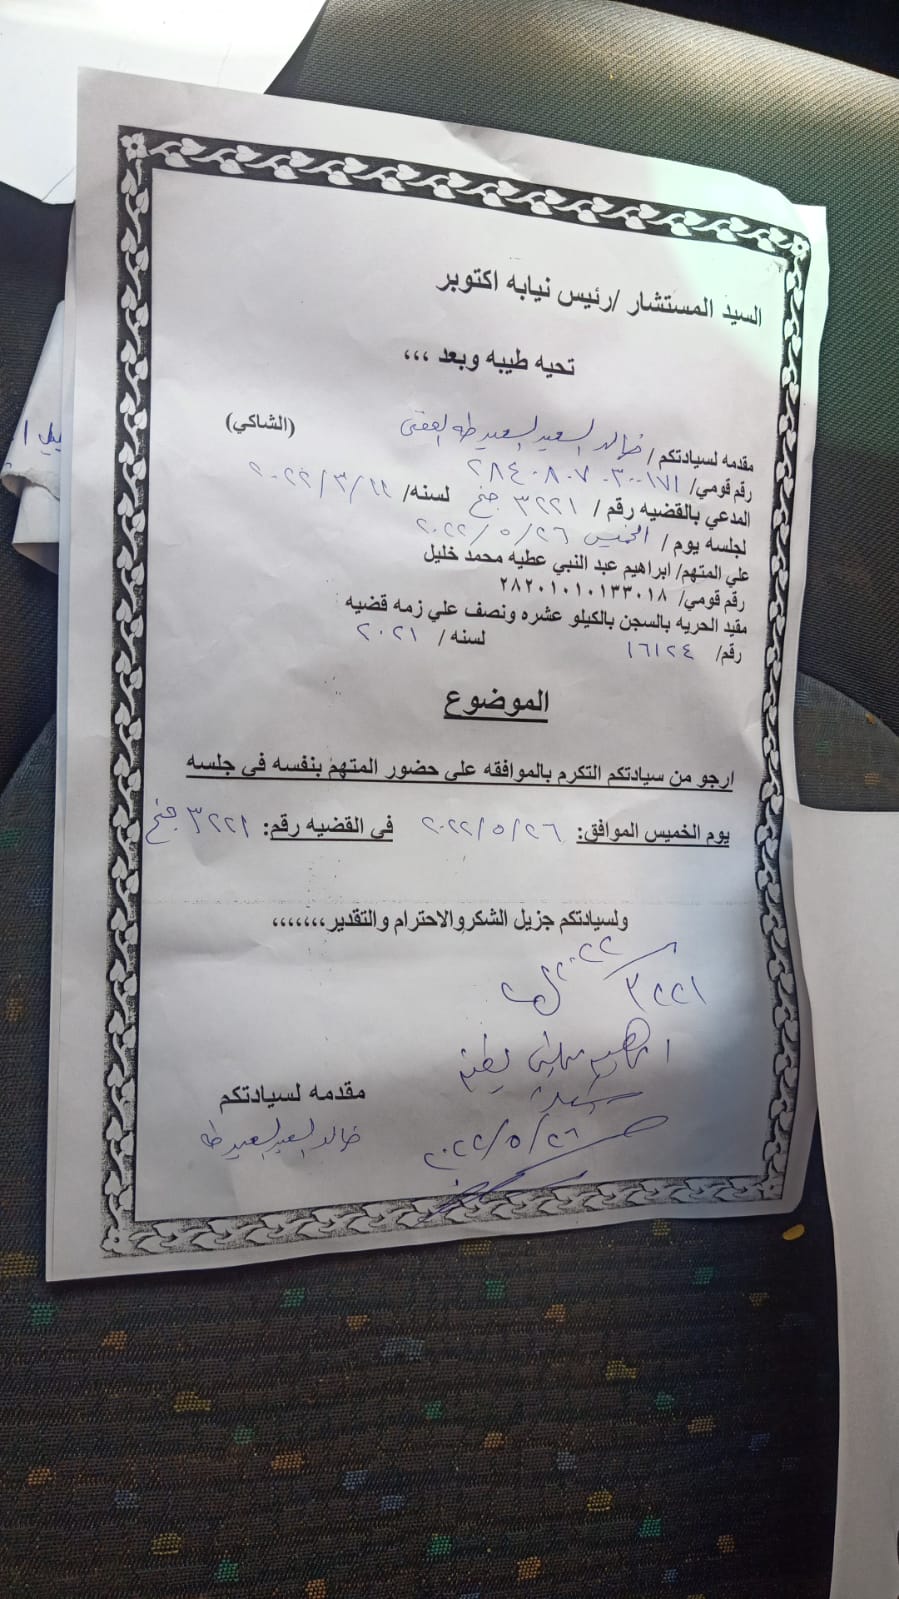 السيد المستشار /رئيس نيابه اكتوبر
تحيه طيبه وبعد ،،،
مقدمه لسيادتكم / خالد السعيد السعيد طه الفقى (الشاكي)
رقم قومي/ ٢٨٤٠٨٠٧٠٣٠٠١٧١
المدعي بالقضيه رقم / ٣٢٢١ جنح لسنه/ ٢٠٢٢/٣/٢٢
لجلسه يوم / الخميس ٢٠٢٢/٥/٢٦
علي المتهم/ ابراهيم عبد النبي عطيه محمد خليل
رقم قومي/ ٢٨٢٠١٠١٠١٣٣٠١٨
مقيد الحريه بالسجن بالكيلو عشره ونصف علي زمه قضيه
رقم/ ١٦١٢٤ لسنه / ٢٠٢١
الموضوع
ارجو من سيادتكم التكرم بالموافقه على حضور المتهم بنفسه في جلسه
يوم الخميس الموافق: ٢٠٢٢/٥/٢٦ في القضيه رقم: ٣٢٢١ جنح
ولسيادتكم جزيل الشكروالاحترام والتقدير،،،،،،،
٣٢٢١ ٢٠٢٢
٢٠٢٢/٥/٢٦
مقدمه لسيادتكم
خالد السعيد السعيد طه